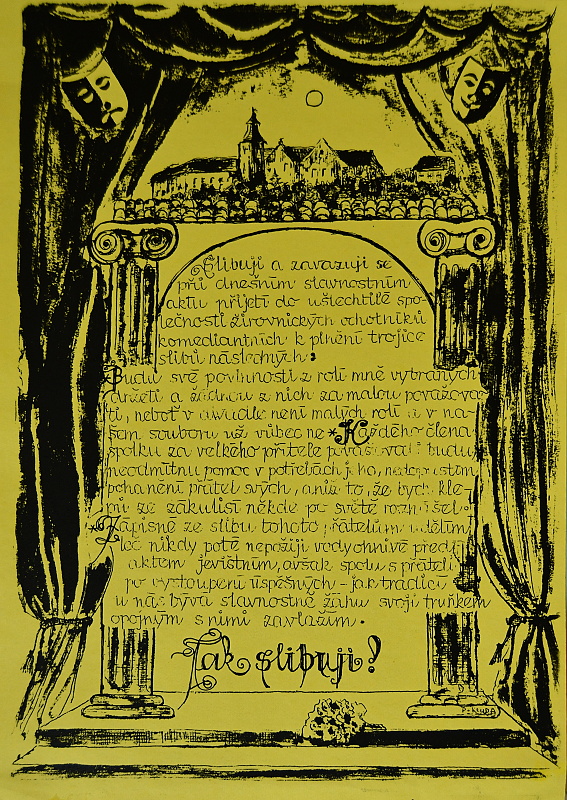 Slibuji a zavazuji se
při dnešním slavnostním
aktu přijetí do ušlechtilé spo-
lečnosti žirovnických ochotníků
komediantních k plnění trojice
slibů následných:
Budu své povinnosti z rolí mně vybraných
držeti a žádnou z nich za malou považova-
ti, neboť v divadle není malých rolí a v na-
šem souboru už vůbec ne * Každého člena
spolku za velkého přítele považovati budu,
neodmítnu pomoc v potřebách jeho, nedopustím
pohanění přátel svých, aniž to, že bych kle-
py ze zákulisí někde po světě roznášel.
* Zápisné ze slibu tohoto přátelům udělím,
leč nikdy poté nepožiji vody ohnivé před
aktem jevištním, avšak spolu s přáteli
po vystoupení úspěšných - jak tradicí
u nás bývá slavnostně žáhu svoji truňkem
opojným s nimi zavlažím.
Tak slibuji!